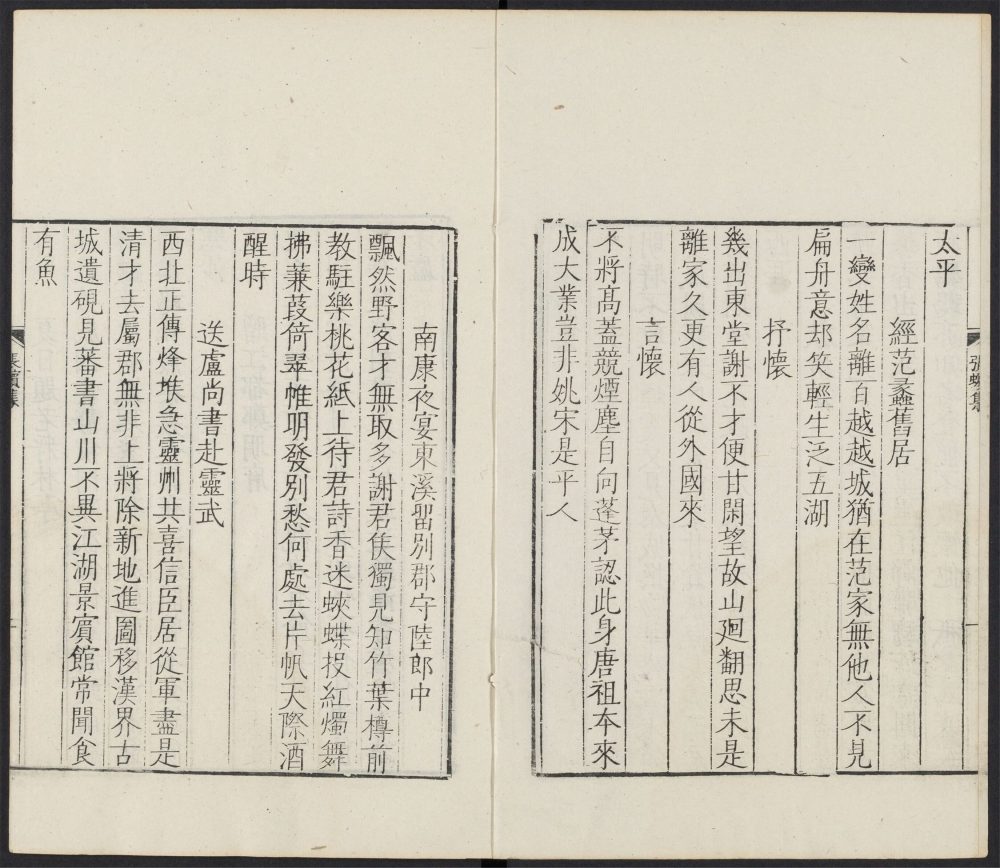 太平
經范蠡舊居
一變姓名離百越越城猶在范家無他人不見
扁舟意却笑輕生泛五湖
抒懷
幾出東堂謝不才便甘閑望故山迴翻思未是
離家久更有人從外國來
言懷
不將髙蓋競煙塵自向蓬茅認此身唐祖本來
成大業豈非姚宋是平人
張蠙集
南康夜宴東溪留別郡守陸郎中
飄然野客才無取多謝君侯獨見知竹葉樽前
教駐樂桃花紙上待君詩香迷蛺蝶投紅燭舞
拂蒹葭倚翠帷明發別愁何處去片帆天際酒
醒時
送盧尚書赴靈武
西北正傳烽堠急靈州共喜信臣居從軍盡是
清才去屬郡無非上將除新地進圖移漢界古
城遺硯見蕃書山川不異江湖景賓館常聞食
有魚
張蠙集